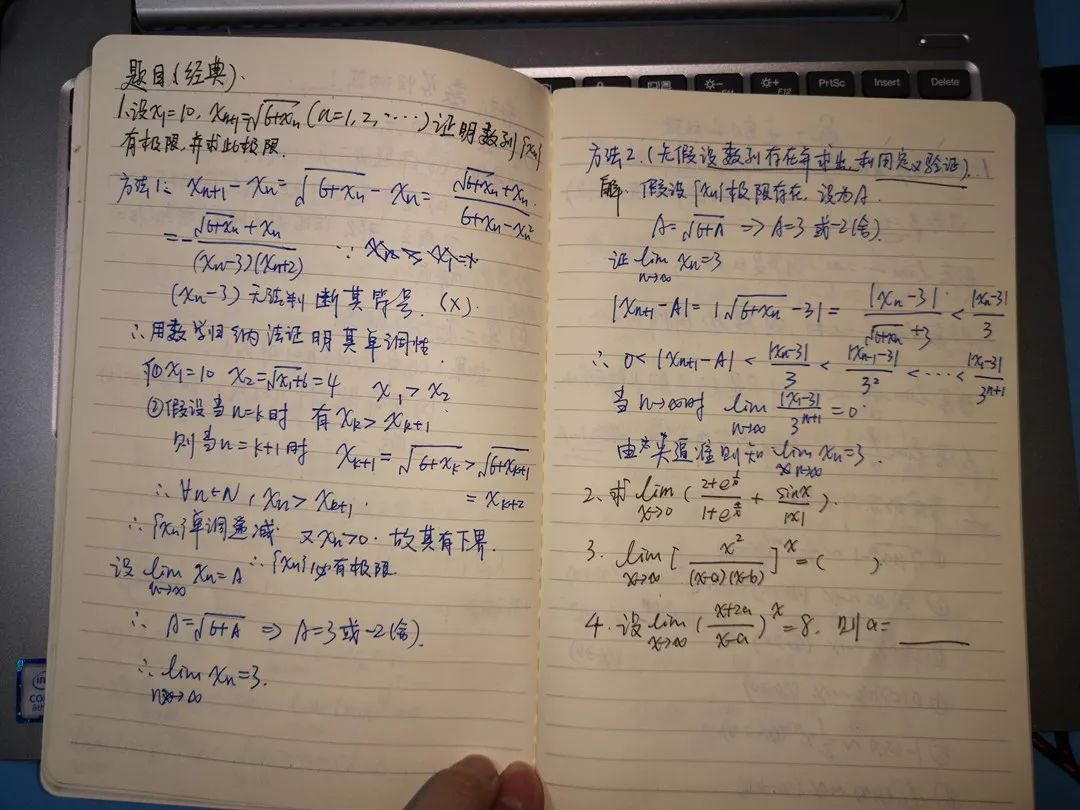 题目(经典).
1.设x₁=10, xₙ₊₁=√(6+xₙ) (n=1,2,…) 证明数列{xₙ}
有极限,并求此极限.
方法1: xₙ₊₁-xₙ=√(6+xₙ)-xₙ=(√(6+xₙ)+xₙ)/(6+xₙ-xₙ²).
=-(√(6+xₙ)+xₙ)/((xₙ-3)(xₙ+2))
(xₙ-3)无法判断其符号. (×).
∴用数学归纳法证明其单调性.
①x₁=10 x₂=√(x₁+6)=4 x₁>x₂
②假设当n=k时 有xₖ>xₖ₊₁
则当n=k+1时 xₖ₊₁=√(6+xₖ)>√(6+xₖ₊₁)
=xₖ₊₂
∴∀n∈N, xₙ>xₖ₊₁.
∴{xₙ}单调递减 又xₙ>0. 故其有下界.
∴{xₙ}必有极限
设 lim(n→∞) xₙ=A
∴ A=√(6+A) ⇒ A=3或-2(舍).
∴ lim(n→∞) xₙ=3.
方法2.(先假设数列存在并求出,利用定义验证).
解: 假设{xₙ}极限存在,设为A.
A=√(6+A) ⇒ A=3或-2(舍).
证 lim(n→∞) xₙ=3
|xₙ₊₁-A|=|√(6+xₙ)-3|=|xₙ-3|/(√(6+xₙ)+3)<|xₙ-3|/3
∴ 0<|xₙ₊₁-A|<|xₙ-3|/3<|xₙ₋₁-3|/3²<…<|x₁-3|/3ⁿ⁺¹
当n→∞时 lim(n→∞) |x₁-3|/3ⁿ⁺¹=0.
由夹逼准则知 lim(n→∞) xₙ=3.
2、求 lim(x→0) ((2+e^(1/x))/(1+e^(4/x)) + sinx/|x|).
3. lim(x→∞) [x²/((x-a)(x-b))]^x=( )
4.设 lim(x→∞) ((x+2a)/(x-a))^x=8. 则a=____
PrtSc
Insert
Delete
F12
intel